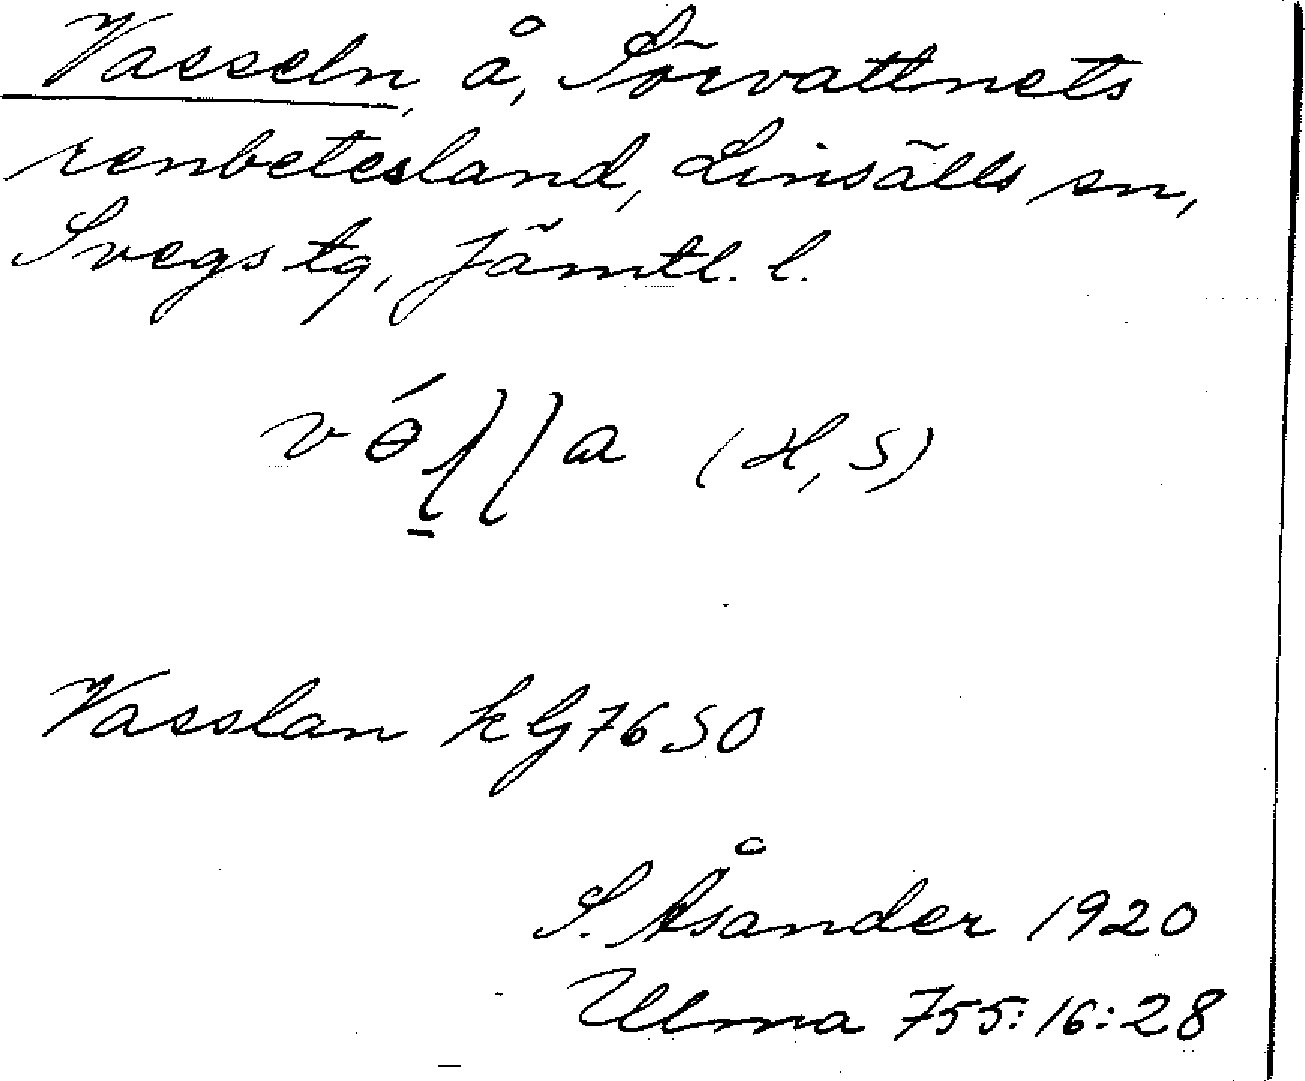 Vasseln, å, Sörvattnets
renbetesland, Linsälls sn,
Svegs tg, Jämtl. l.
(H, S)
Vasslan kG 76 SO
S. Åsander 1920
Ulma 755:16:28